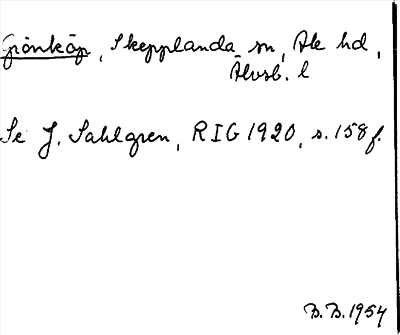 Grönköp, Skepplanda sn, Ale hd,
Älvsb. l
Se J. Sahlgren, RIG 1920, s. 158 f.
B.B. 1954